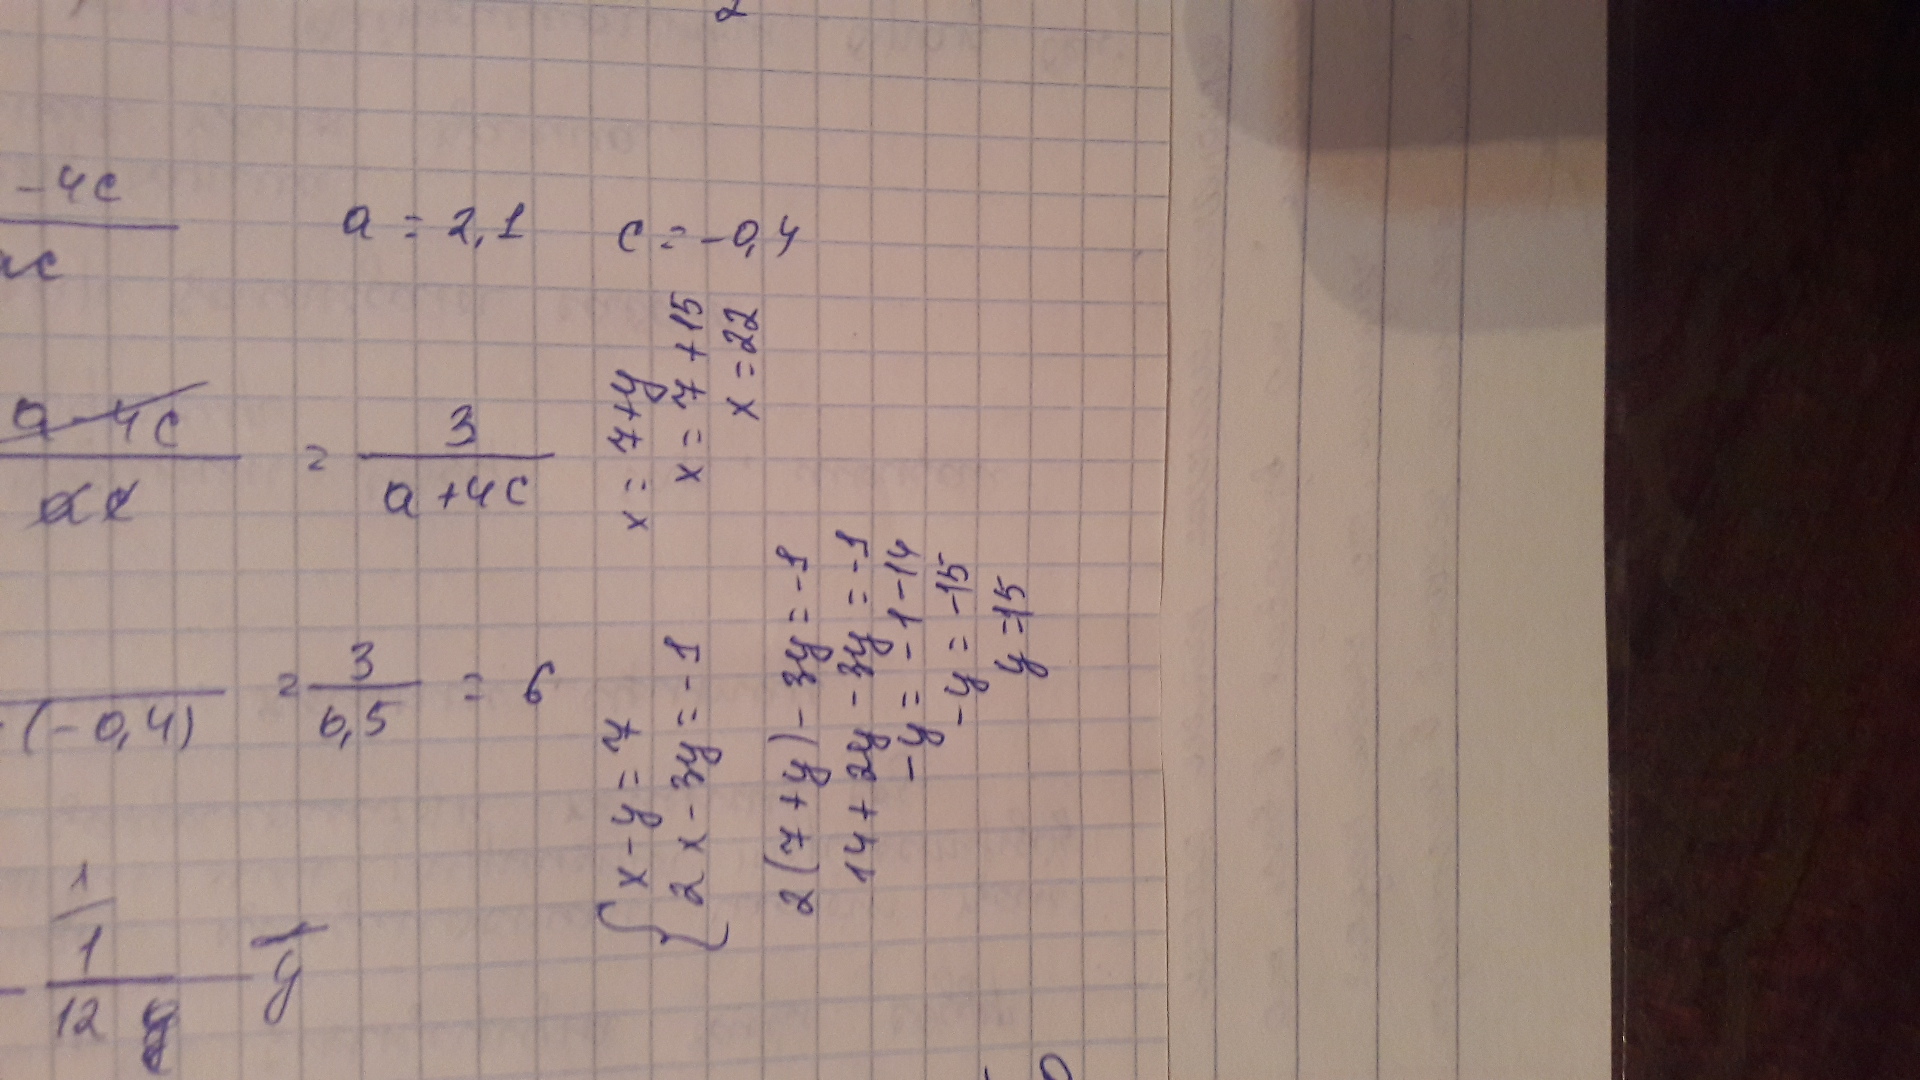 -4c
ac
a = 2,1 c = -0,4
a-4c
ac
= 3
a+4c
(-0,4)
= 3
0,5
= 6
1
1
12
y
x-y=7
2x-3y=-1
x=7+y
x=7+15
x=22
2(7+y)-3y=-1
14+2y-3y=-1
-y=-1-14
-y=-15
y=15